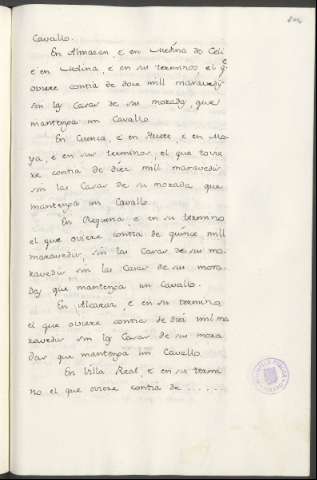 Cavallo.
En Almazan, e en Medina de Celi
e en Molina, e en su termino, el q.
oviere contia de doce mill maravedis
sin las Casas de su morada, que
mantenga un Cavallo
En Cuenca, e en Huete, e en Mo-
ya, e en sus terminos, el que tovie
re contia de diez mill maravedis
sin las Casas de su morada que
mantenga un Cavallo.
En Requena, e en su termino
el que oviere contia de quince mill
maravedis, sin las Casas de su mo-
ravedis sin las Casas de su mora-
das que mantenga un Cavallo.
En Alcaraz, e en su termino,
el que oviere contia de diez mil ma
ravedis sin las Casas de su mora
das que mantenga un Cavallo
En Villa Real, e en su termi
no el que oviere contia de . . . . .